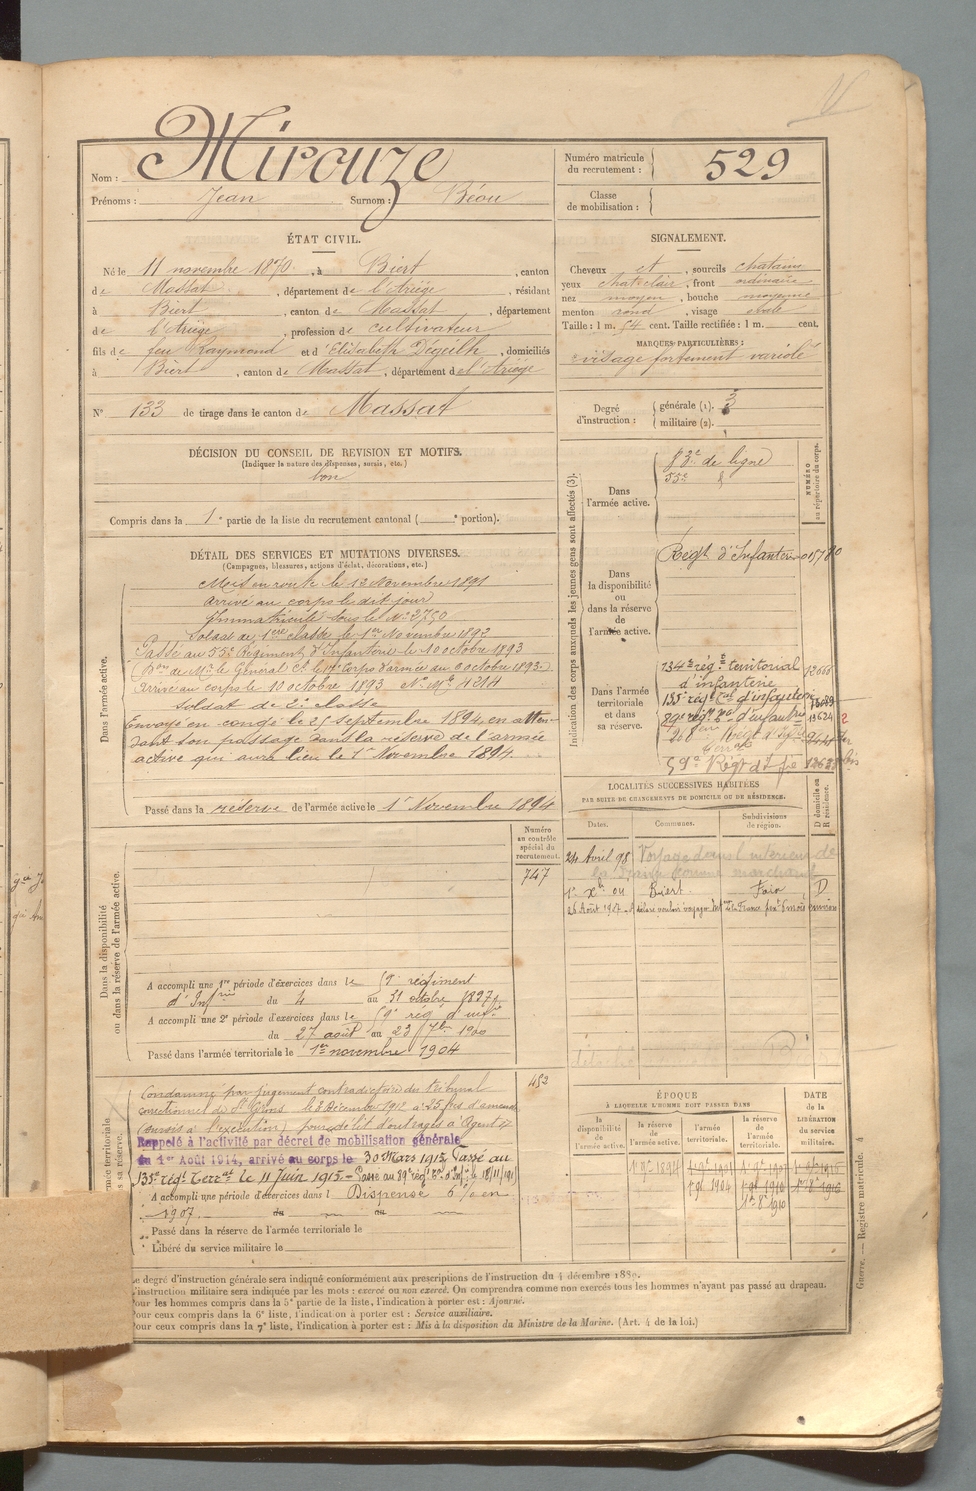 Mirouze
Nom :
Prénoms : Jean Surnom : Béou
Numéro matricule du recrutement : 529
Classe de mobilisation :
ÉTAT CIVIL.
Né le 11 novembre 1870, à Biert, canton
de Massat, département de l'Ariège, résidant
à Biert, canton de Massat, département
de l'Ariège, profession de cultivateur
fils de feu Raymond et d'Elisabeth Dégeilh, domiciliés
à Biert, canton de Massat, département de l'Ariège
N° 133 de tirage dans le canton de Massat
SIGNALEMENT.
Cheveux et, sourcils chatains
yeux chat. clair, front ordinaire
nez moyen, bouche moyenne
menton rond, visage ovale
Taille : 1 m. 54 cent. Taille rectifiée : 1 m. cent.
MARQUES PARTICULIÈRES :
visage fortement variolé
Degré d'instruction : générale (1). 3
militaire (2).
DÉCISION DU CONSEIL DE REVISION ET MOTIFS.
(Indiquer la nature des dispenses, sursis, etc.)
bon
Compris dans la 1e partie de la liste du recrutement cantonal ( e portion).
DÉTAIL DES SERVICES ET MUTATIONS DIVERSES.
(Campagnes, blessures, actions d'éclat, décorations, etc.)
Dans l'armée active.
Mis en route le 12 Novembre 1891
arrivé au corps le dit jour
Immatriculé sous le N° 2750
Soldat de 1ere classe le 1er Novembre 1892
Passé au 55e Régiment d'Infanterie le 10 octobre 1893
arrivé au corps le 10 octobre 1893 N° Mle 4214
Soldat de 2e classe
Envoyé en congé le 25 Septembre 1894, en atten-
dant son passage dans la réserve de l'armée
active qui aura lieu le 1er Novembre 1894.
Passé dans la réserve de l'armée active le 1er Novembre 1894
Indication des corps auxquels les jeunes gens sont affectés (3).
NUMÉRO au répertoire du corps.
Dans l'armée active.
de ligne
55e
Dans la disponibilité ou dans la réserve de l'armée active.
Régt d'Infanterie 015780
Dans l'armée territoriale et dans sa réserve.
134e rég. territorial
d'infanterie 12666
135e rég. Tal d'infanterie
89e rég. d'infanterie 13624
59e Régt d'Ife
LOCALITÉS SUCCESSIVES HABITÉES
PAR SUITE DE CHANGEMENTS DE DOMICILE OU DE RÉSIDENCE.
D domicile ou R résidence.
Dates. Communes. Subdivisions de région.
24 Avril 98 Voyage dans l'intérieur de
la France comme marchand
Biert. Foix D
26 Août 1907
Dans la disponibilité ou dans la réserve de l'armée active.
Numéro au contrôle spécial du recrutement.
747
A accompli une 1re période d'exercices dans le 59e régiment
d'Infrie du 4 au 31 octobre 1897
A accompli une 2e période d'exercices dans le 59e rég d'infie
du 27 août au 23 7bre 1900
Passé dans l'armée territoriale le 1er novembre 1904
452
Condamné par jugement contradictoire du tribunal
correctionnel de St Girons le 3 Décembre 1912 à 25 frs d'amende
(sursis à l'exécution) pour délit d'outrages à Agent
Rappelé à l'activité par décret de mobilisation générale
du 1er Août 1914, arrivé au corps le 30 Mars 1915. Passé au
135e régt Terral le 11 Juin 1915. - Passé au 89e rég. Tal d'Inf. le 18/11/191
A accompli une période d'exercices dans l Dispensé
1907. du au
Passé dans la réserve de l'armée territoriale le
Libéré du service militaire le
ÉPOQUE
À LAQUELLE L'HOMME DOIT PASSER DANS
DATE de la LIBÉRATION du service militaire.
la disponibilité de l'armée active.
la réserve de l'armée active.
l'armée territoriale.
la réserve de l'armée territoriale.
1er 9e 1894
1er 9e 1904
1er 9e 1910
1er 8e 1910
Le degré d'instruction générale sera indiqué conformément aux prescriptions de l'instruction du 4 décembre 1889.
L'instruction militaire sera indiquée par les mots : exercé ou non exercé. On comprendra comme non exercés tous les hommes n'ayant pas passé au drapeau.
Pour les hommes compris dans la 5e partie de la liste, l'indication à porter est : Ajourné.
Pour ceux compris dans la 6e liste, l'indication à porter est : Service auxiliaire.
Pour ceux compris dans la 7e liste, l'indication à porter est : Mis à la disposition du Ministre de la Marine. (Art. 4 de la loi.)
Guerre. — Registre matricule. 4